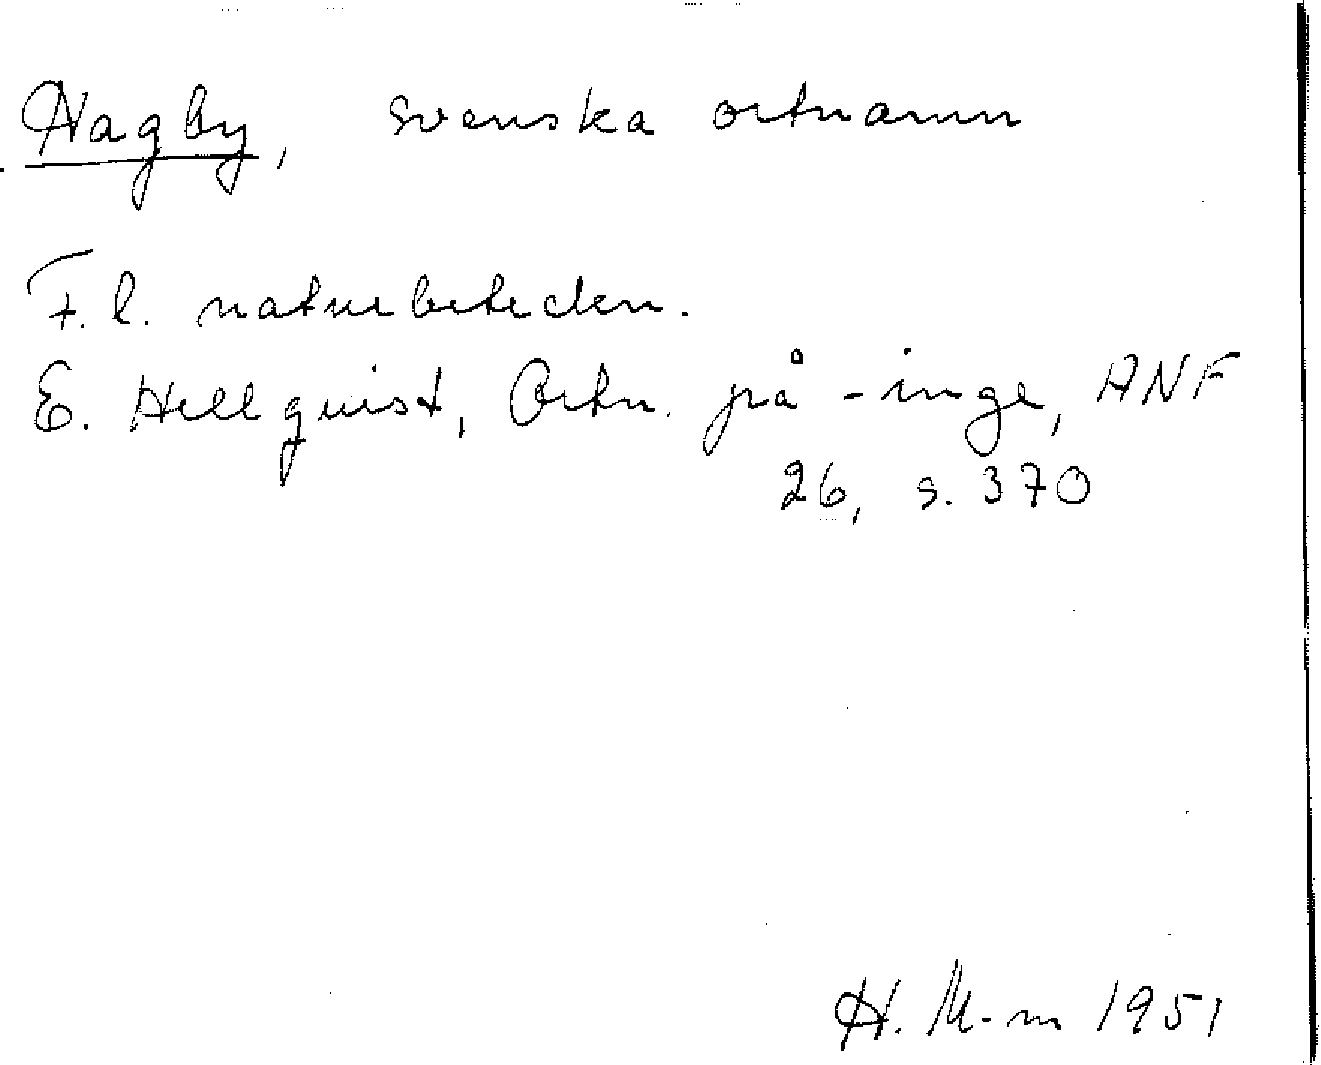 Hagby, svenska ortnamn
F.l. naturbeteckn.
E. Hellquist, Ortn. på -inge, ANF
26, s. 370
H. M-m 1951